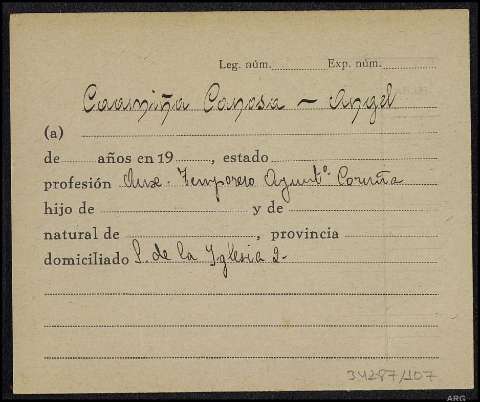 Leg. núm. Exp. núm.
Caamiña Canosa - Angel
(a)
de años en 19 , estado
profesión Aux. Temporero Ayuntº. Coruña
hijo de y de
natural de , provincia
domiciliado S. de la Iglesia 2-
34287/107
ARG